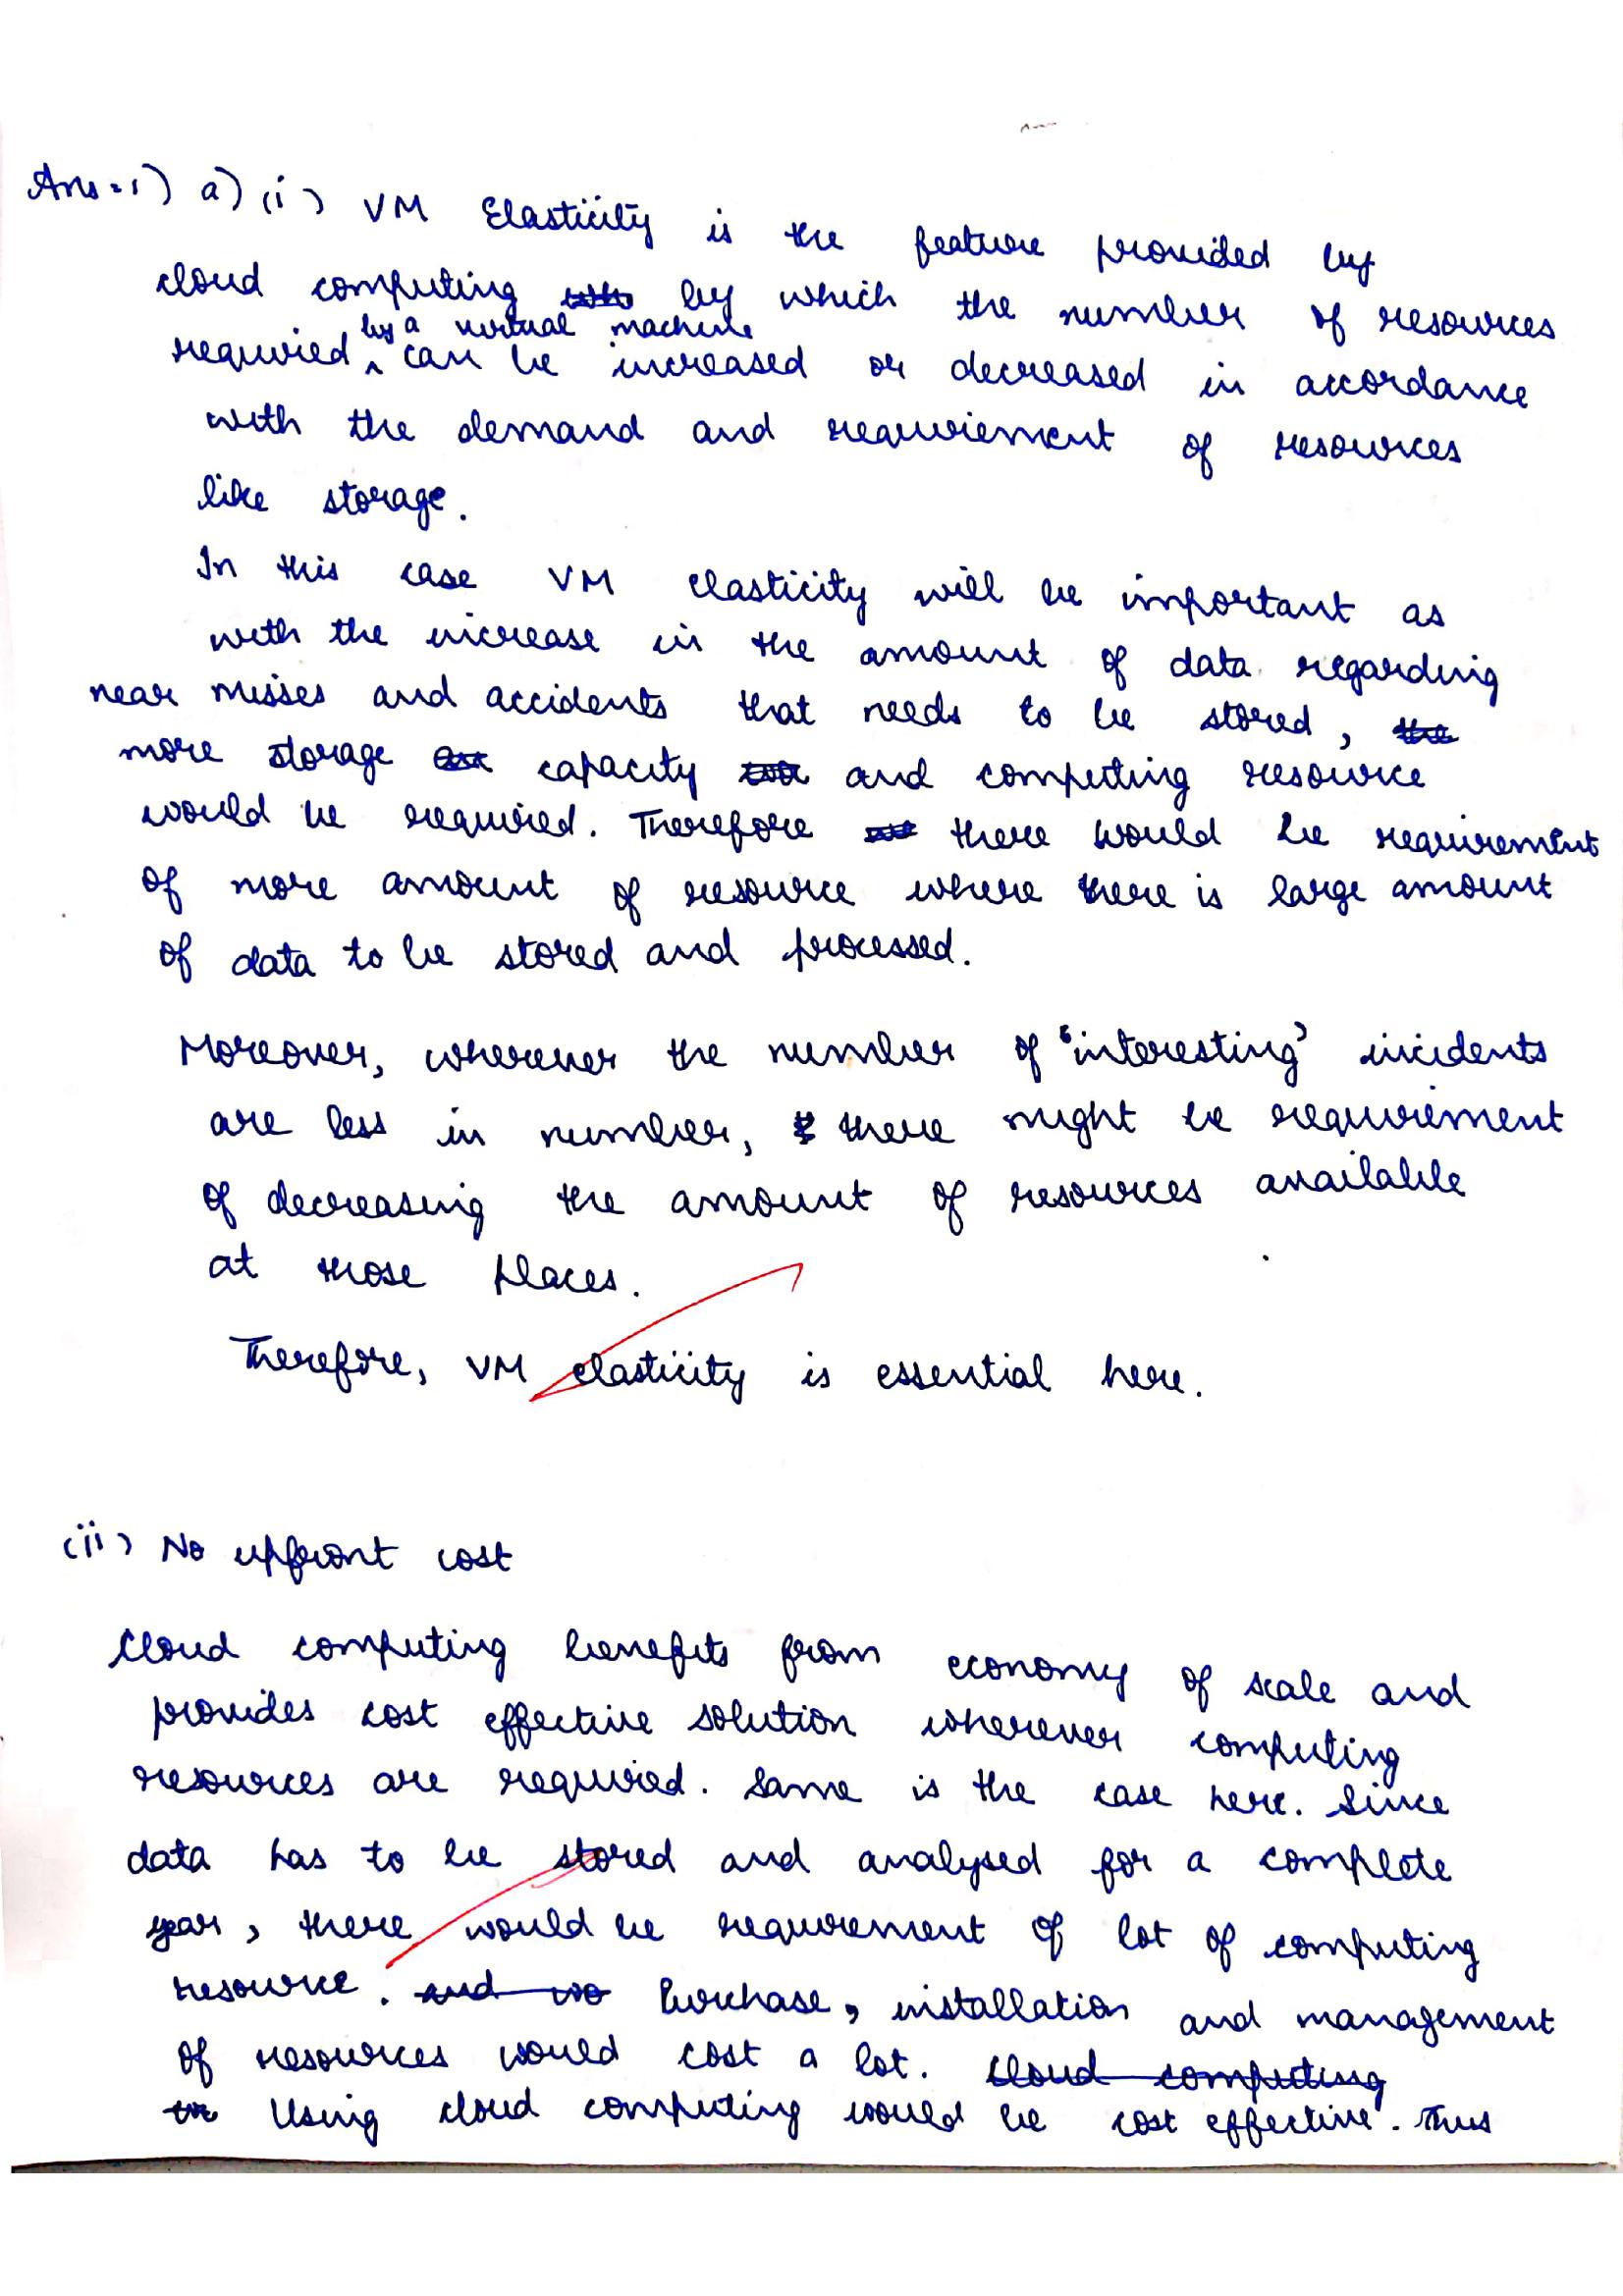 Ans:1) a) (i) VM Elasticity is the feature provided by
cloud computing by which the number of resources
by a virtual machine
required can be increased or decreased in accordance
with the demand and requirement of resources
like storage.
In this case VM elasticity will be important as
with the increase in the amount of data regarding
near misses and accidents that needs to be stored, the
more storage capacity and computing resource
would be required. Therefore there would be requirement
of more amount of resource where there is large amount
of data to be stored and processed.
Moreover, wherever the number of 'interesting' incidents
are less in number, there might be requirement
of decreasing the amount of resources available
at those places.
Therefore, VM elasticity is essential here.
(ii) No upfront cost
Cloud computing benefits from economy of scale and
provides cost effective solution wherever computing
resources are required. Same is the case here. Since
data has to be stored and analysed for a complete
year, there would be requirement of lot of computing
resource. and Purchase, installation and management
of resources would cost a lot. Cloud computing
Using cloud computing would be cost effective. Thus